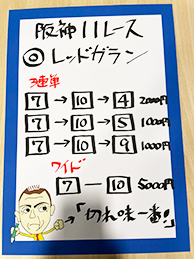 阪神11レース
◎レッドガラン
3連単
7→10→4 2000円
7→10→5 1000円
7→10→9 1000円
ワイド
7－10 5000円
→「切れ味一番!」